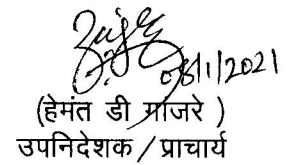 08/1/2021
(हेमंत डी मांजरे )
उपनिदेशक / प्राचार्य